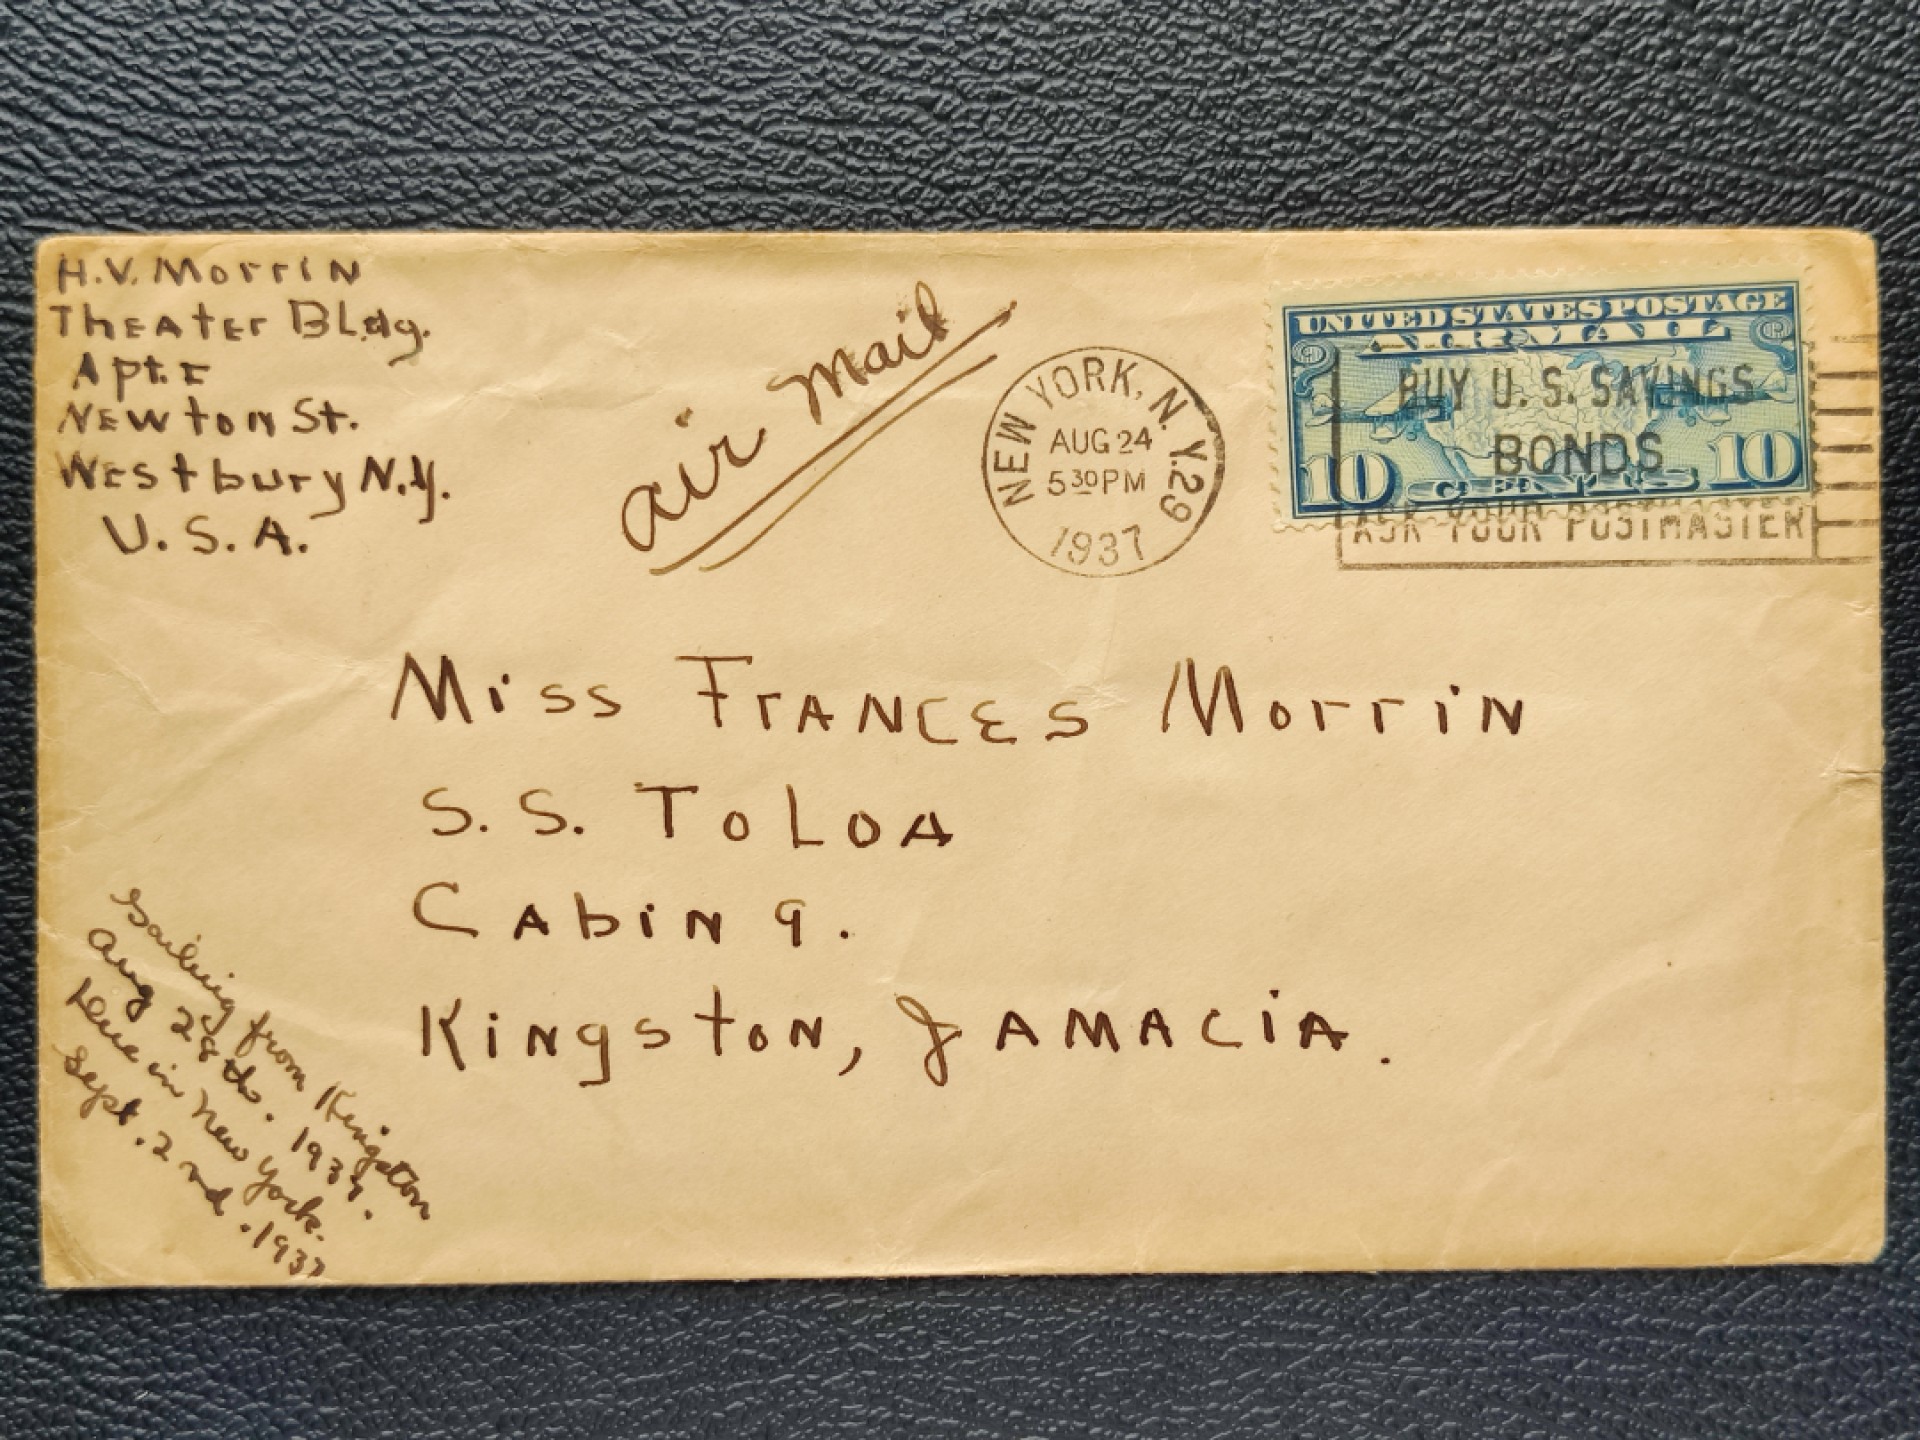 H.V. Morrin
Theater Bldg.
Apt. E
Newton St.
Westbury N.Y.
U.S.A.
air mail
NEW YORK, N.Y. 29
AUG 24
5 30 PM
1937
UNITED STATES POSTAGE
AIR MAIL
10 CENTS 10
BUY U.S. SAVINGS
BONDS
ASK YOUR POSTMASTER
Miss Frances Morrin
S.S. Toloa
Cabin 9.
Kingston, Jamacia.
Sailing from Kingston
Aug 28th. 1937.
Due in New York.
Sept. 2nd. 1937